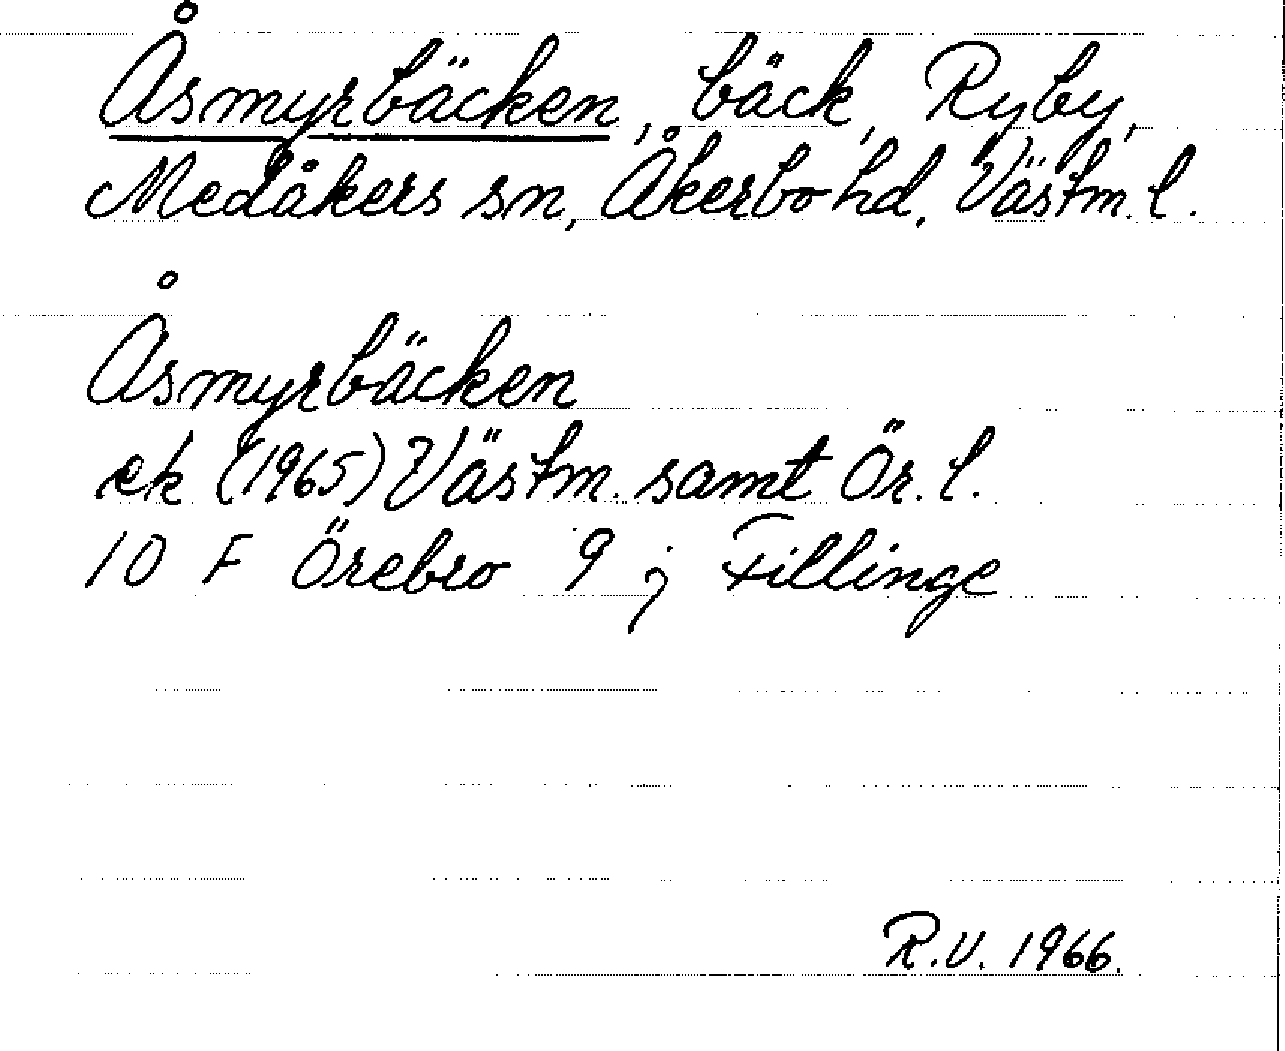 Åsmyrbäcken, bäck, Ryby,
Medåkers sn, Åkerbo hd. Västm. l.
Åsmyrbäcken
ek (1965) Västm. samt Ör. l.
10 F Örebro 9 j Fillinge
R.V. 1966.